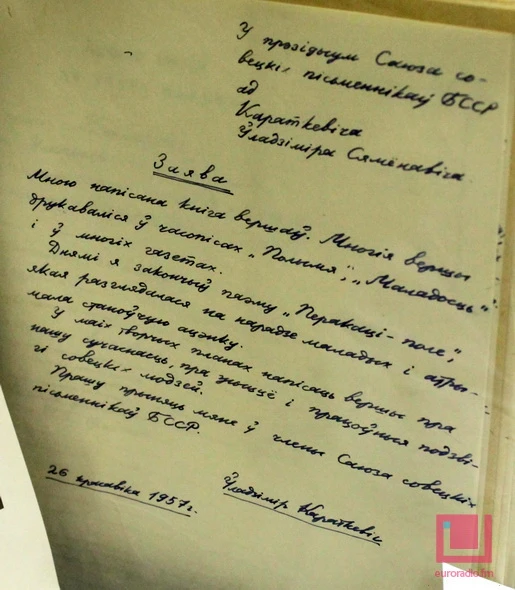 У прэзідыум Саюза са-
вецкіх пісьменнікаў БССР
ад
Караткевіча
Уладзіміра Сямёнавіча.
Заява
Мною напісана кніга вершаў. Многія вершы
друкаваліся ў часопісах „Полымя", „Маладосць"
і ў многіх газетах.
Днямі я закончыў паэму „Перакаці-поле",
якая разглядалася на нарадзе маладых і атры-
мала станоўчую ацэнку.
У маіх творчых планах напісаць вершы пра
нашу сучаснасць, пра жыццё і працоўныя подзві-
гі совецкіх людзей.
Прашу прыняць мяне ў члены Саюза совецкіх
пісьменнікаў БССР.
26 красавіка 1957 г.
Уладзімір Караткевіч
euroradio.fm